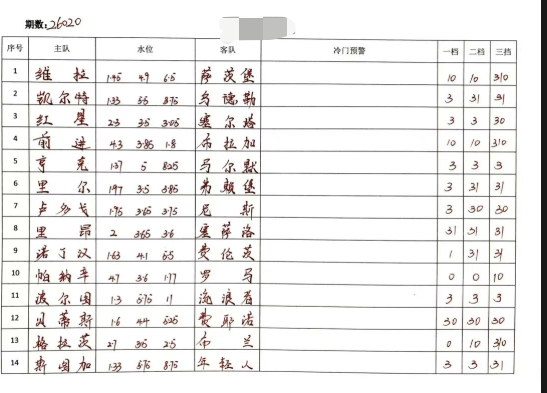 期数:26020
序号 主队 水位 客队 冷门预警 一档 二档 三档
1 维拉 1.45 4.9 6.5 萨茨堡 10 10 310
2 凯尔特 1.33 5.5 8.75 乌德勒 3 31 31
3 红星 2.3 3.5 3.05 塞尔塔 3 3 30
4 前进 4.3 3.85 1.8 布拉加 10 10 310
5 亨克 1.37 5 8.25 马尔默 3 3 3
6 里尔 1.97 3.5 3.85 弗赖堡 3 31 31
7 卢多戈 1.95 3.65 3.75 尼斯 3 30 30
8 里昂 2 3.65 3.6 塞萨洛 31 31 31
9 诺丁汉 1.63 4.1 5.5 费伦茨 1 31 31
10 帕纳辛 4.7 3.6 1.77 罗马 0 0 10
11 波尔图 1.3 5.75 11 流浪者 3 3 3
12 贝蒂斯 1.6 4.4 5.25 费耶诺 30 30 30
13 格拉茨 2.7 3.5 2.5 布兰 0 10 310
14 斯图加 1.33 5.75 8.75 年轻人 3 3 31